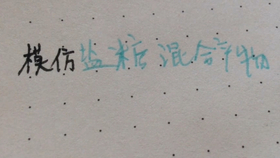 模仿盐糖混合物